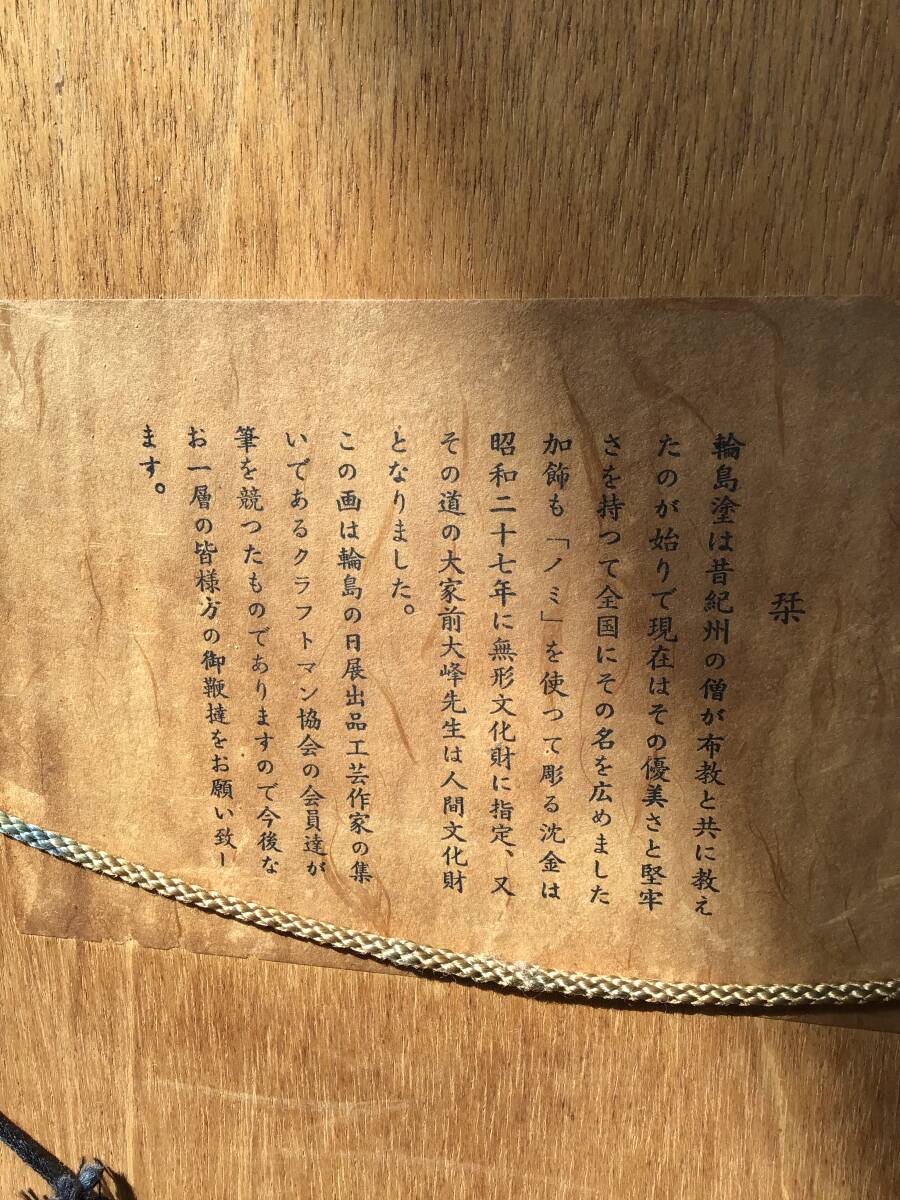 栞
輪島塗は昔紀州の僧が布教と共に教え
たのが始りで現在はその優美さと堅牢
さを持つて全国にその名を広めました
加飾も「ノミ」を使つて彫る沈金は
昭和二十七年に無形文化財に指定、又
その道の大家前大峰先生は人間文化財
となりました。
この画は輪島の日展出品工芸作家の集
いであるクラフトマン協会の会員達が
筆を競つたものでありますので今後な
お一層の皆様方の御鞭撻をお願い致し
ます。